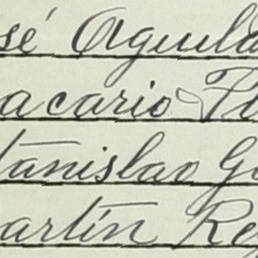 sé Aguila
acario Fl
tanislao G
artín Rey